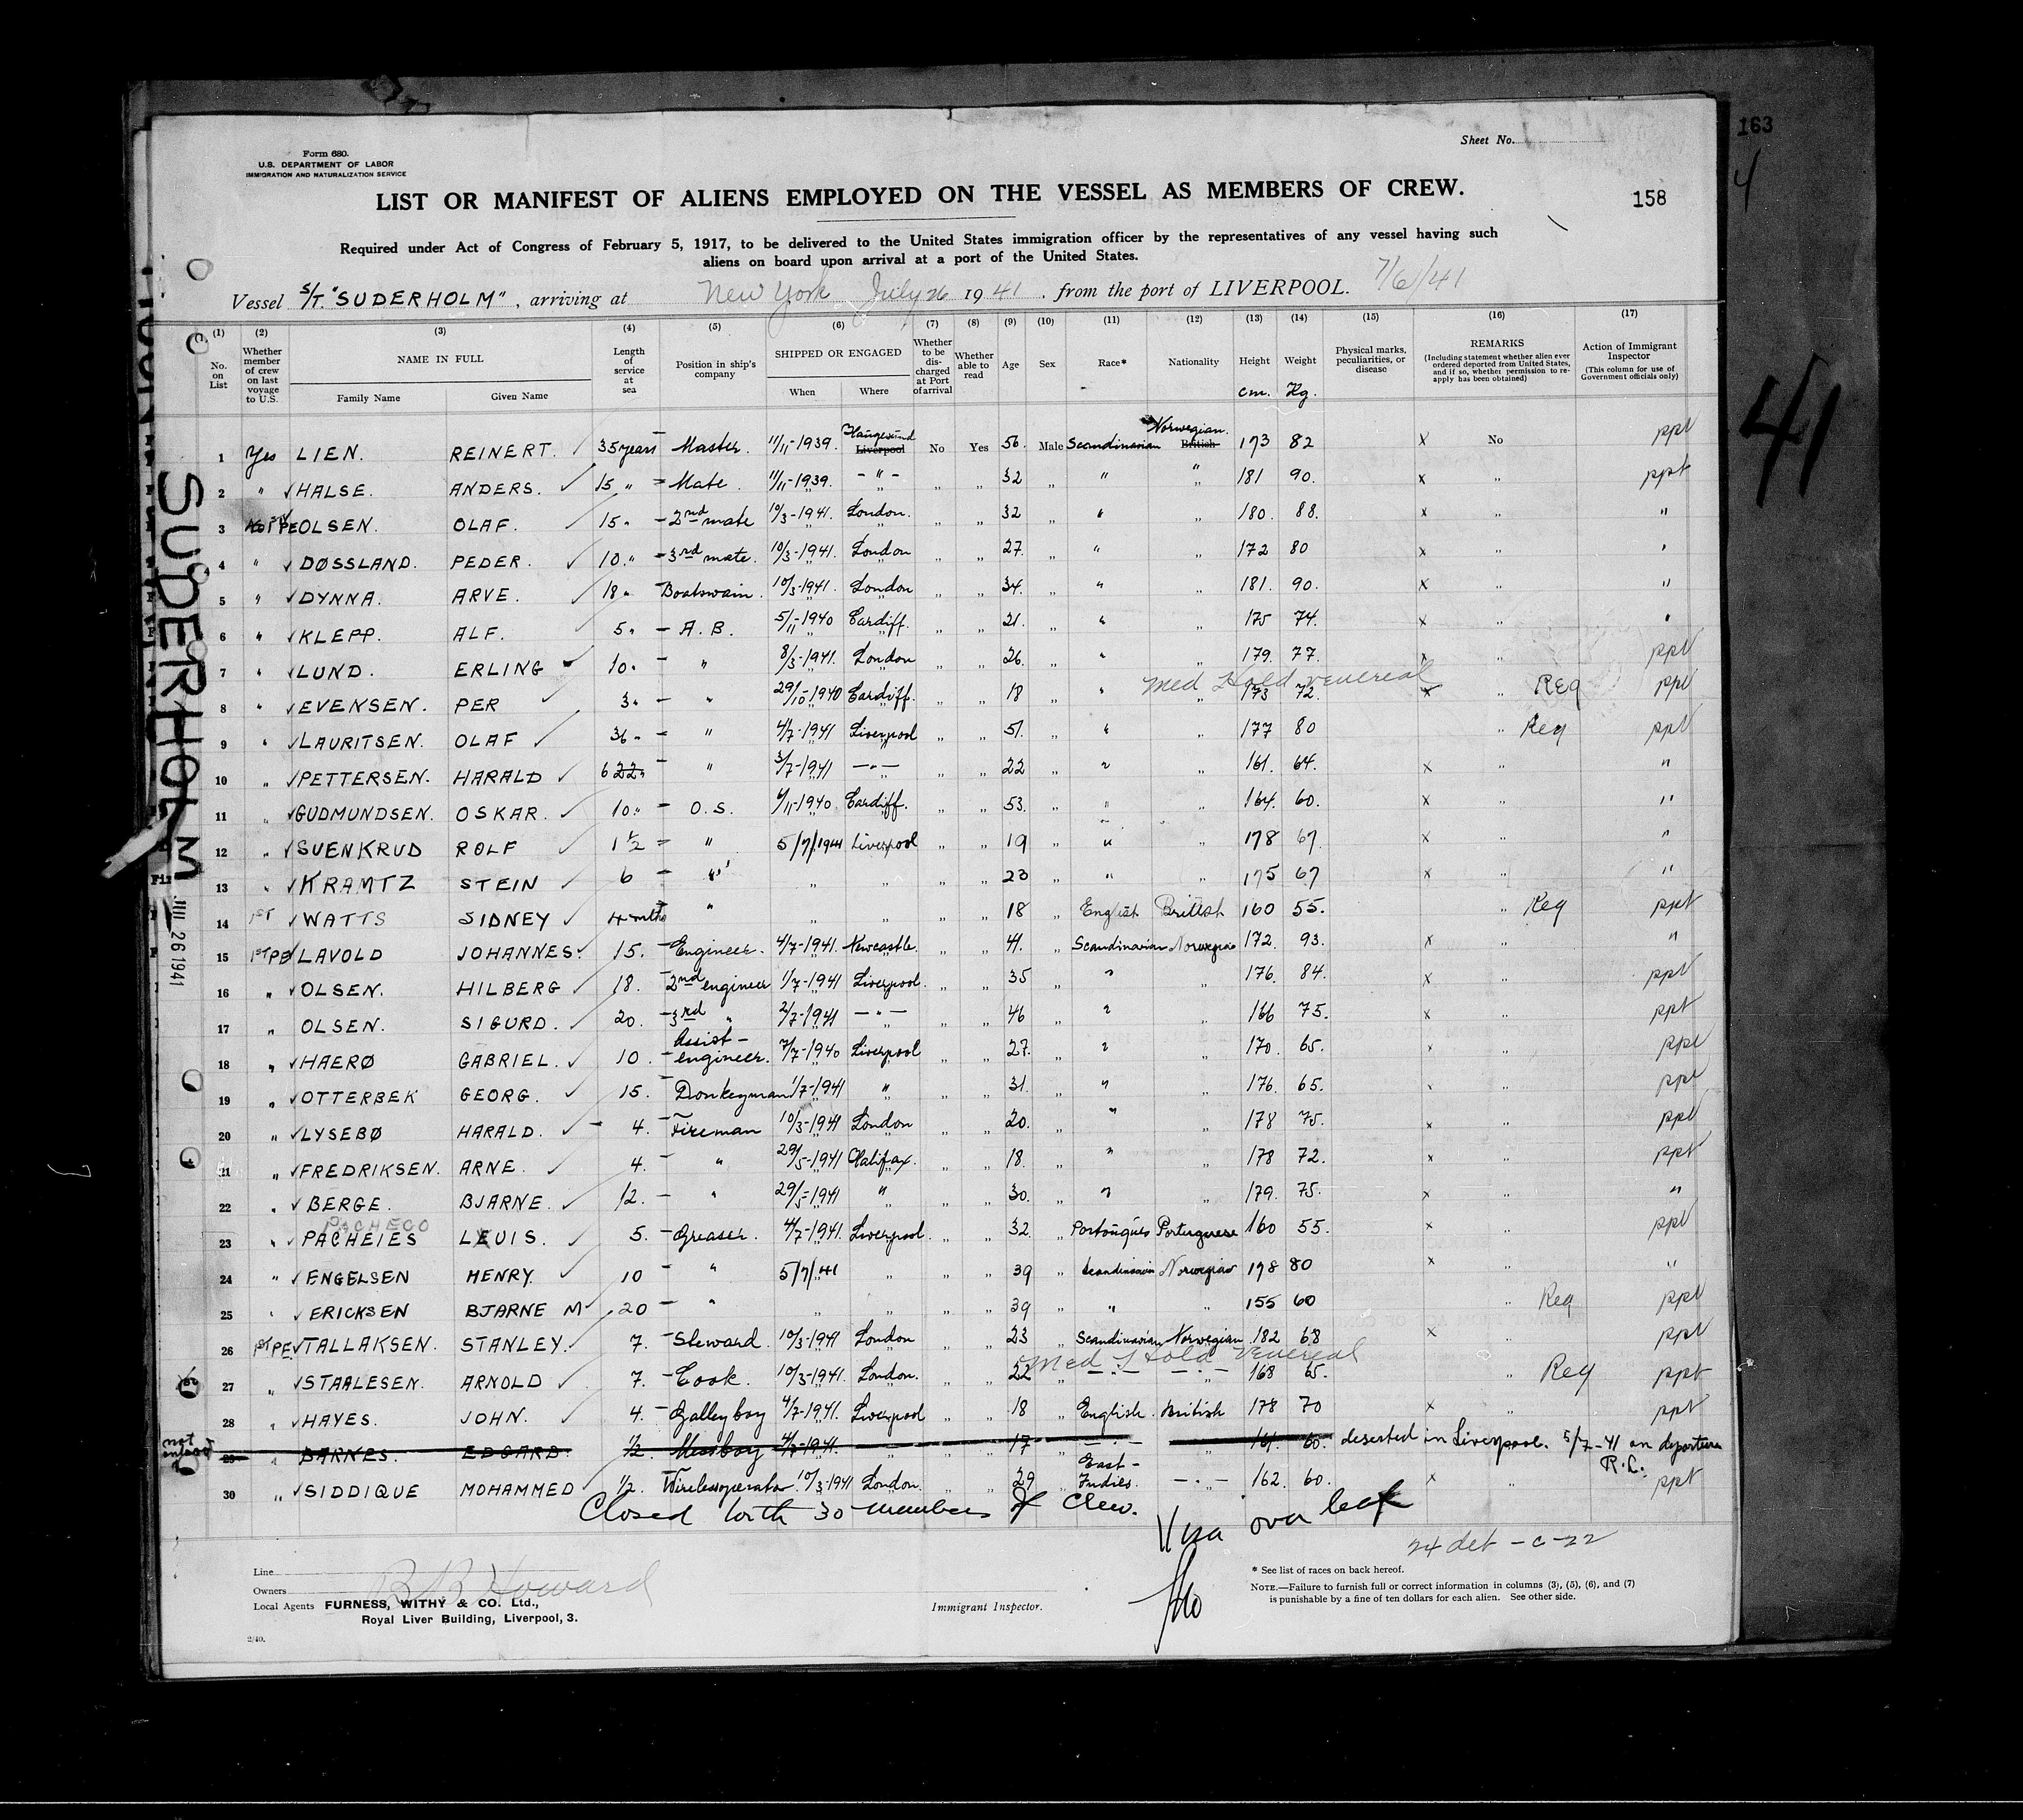 163
4
Sheet No.
Form 680.
U.S. DEPARTMENT OF LABOR
IMMIGRATION AND NATURALIZATION SERVICE
LIST OR MANIFEST OF ALIENS EMPLOYED ON THE VESSEL AS MEMBERS OF CREW.
158
Required under Act of Congress of February 5, 1917, to be delivered to the United States immigration officer by the representatives of any vessel having such
aliens on board upon arrival at a port of the United States.
Vessel S/T. "SUDERHOLM", arriving at New York July 26 1941, from the port of LIVERPOOL. 7/6/41
(1) (2) (3) (4) (5) (6) (7) (8) (9) (10) (11) (12) (13) (14) (15) (16) (17)
No. on List
Whether member of crew on last voyage to U.S.
NAME IN FULL
Family Name Given Name
Length of service at sea
Position in ship's company
SHIPPED OR ENGAGED
When Where
Whether to be discharged at Port of arrival
Whether able to read
Age
Sex
Race*
Nationality
Height
cm.
Weight
Kg.
Physical marks, peculiarities, or disease
REMARKS
(Including statement whether alien ever ordered deported from United States, and if so, whether permission to reapply has been obtained)
Action of Immigrant Inspector
(This column for use of Government officials only)
41
1 Yes LIEN. REINERT. 35 years Master. 11/11-1939. Haugesund Liverpool No Yes 56. Male Scandinavian Norwegian. British 173 82 x No ppt
2 " HALSE. ANDERS. 15 " Mate. 11/11-1939. -"- " " 32 " " " 181 90. x " ppt
3 OLSEN. OLAF. 15 " 2nd mate 10/3-1941. London. " " 32 " " " 180. 88. x " "
4 " DØSSLAND. PEDER. 10 " 3rd mate. 10/3-1941. London " " 27. " " " 172 80 x " "
5 " DYNNA. ARVE. 18 " Boatswain. 10/3-1941. London " " 34. " " " 181. 90. x " "
6 " KLEPP. ALF. 5 " A.B. 5/11-1940 Cardiff. " " 21. " " " 175 74. x " "
7 " LUND. ERLING 10 " " 8/3-1941. London " " 26. " " " 179. 77. x " ppt
Med Hold venereal
8 " EVENSEN. PER 3 " " 29/10-1940 Cardiff. " " 18 " " " 173 72 x " Req ppt
9 " LAURITSEN. OLAF 36 " " 4/7-1941 Liverpool " " 51. " " " 177 80 " Req ppt
10 " PETTERSEN. HARALD 6 22 " " 3/7-1941 -"- " " 22 " " " 161. 64. x " "
11 " GUDMUNDSEN. OSKAR. 10 " O.S. 4/11-1940 Cardiff. " " 53. " " " 164. 60. x " "
12 " SUENKRUD ROLF 1 1/2 " 5/7/1941 Liverpool " " 19 " " " 178 67. x " "
13 " KRAMTZ STEIN 6 " " " " " 23 " " " 175 67 x " "
14 1ST WATTS SIDNEY 4 mths " " " " " 18 " English British 160 55. " Req ppt
15 1ST PE LAVOLD JOHANNES. 15. Engineer. 4/7-1941. Newcastle. " " 41. " Scandinavian Norwegian 172. 93. x " "
16 " OLSEN. HILBERG 18. 2nd engineer 1/7-1941 Liverpool. " " 35 " " " 176. 84. x " ppt
17 " OLSEN. SIGURD. 20. 3rd " 2/7-1941 -"- " " 46 " " " 166 75. x " ppt
18 " HAERØ GABRIEL. 10. Assist-engineer. 7/7-1940 Liverpool " " 27. " " " 170. 65. x " ppt
19 " OTTERBEK GEORG. 15. Donkeyman 1/7-1941 " " " 31. " " " 176. 65. x " ppt
20 " LYSEBØ HARALD. 4. Fireman 10/3-1941 London " " 20. " " " 178 75. x " ppt
21 " FREDRIKSEN. ARNE. 4. " 29/5-1941 Halifax. " " 18. " " " 178 72. x " ppt
22 " BERGE. BJARNE. 12. " 29/5-1941 " " " 30. " " " 179. 75. x " "
PACHECO
23 " PACHEIES LEUIS. 5. Greaser. 4/7-1941. Liverpool. " " 32. " Portoúgúes Portuguese 160 55. x " ppt
24 " ENGELSEN HENRY. 10 " 5/7/41 " " " 39 " Scandinavian Norwegian 178 80 x " "
25 " ERICKSEN BJARNE M 20 " " " " " 39 " " " 155 60 " Req ppt
26 1ST PE TALLAKSEN. STANLEY. 7. Steward. 10/3-1941 London " " 23 " Scandinavian Norwegian. 182 68 x " ppt
Med Hold Venereal
27 " STAALESEN. ARNOLD 7. Cook. 10/3-1941. London. " " 22 " -"- -"- 168 65. " Req ppt
28 " HAYES. JOHN. 4. Galley boy 4/7-1941. Liverpool " " 18 " English. British 178 70 x " ppt
not
29 " BARNES. EDGARD. 1/2. Messboy 4/7-1941. " " 17 " -"- " 161. 60. deserted in Liverpool. 5/7-41 on departure R.L.
30 " SIDDIQUE MOHAMMED 1/2. Wirelessoperator. 10/3-1941 London. " " 29 " East-Indies. -"- 162 60. x " ppt
Closed with 30 members of Crew.
Visa over leaf
24 det - c-22
Line
Owners
B B Howard
Local Agents FURNESS, WITHY & CO. Ltd.,
Royal Liver Building, Liverpool, 3.
Immigrant Inspector.
* See list of races on back hereof.
NOTE.—Failure to furnish full or correct information in columns (3), (5), (6), and (7)
is punishable by a fine of ten dollars for each alien. See other side.
2/40.
SUDERHOLM
JUL 26 1941